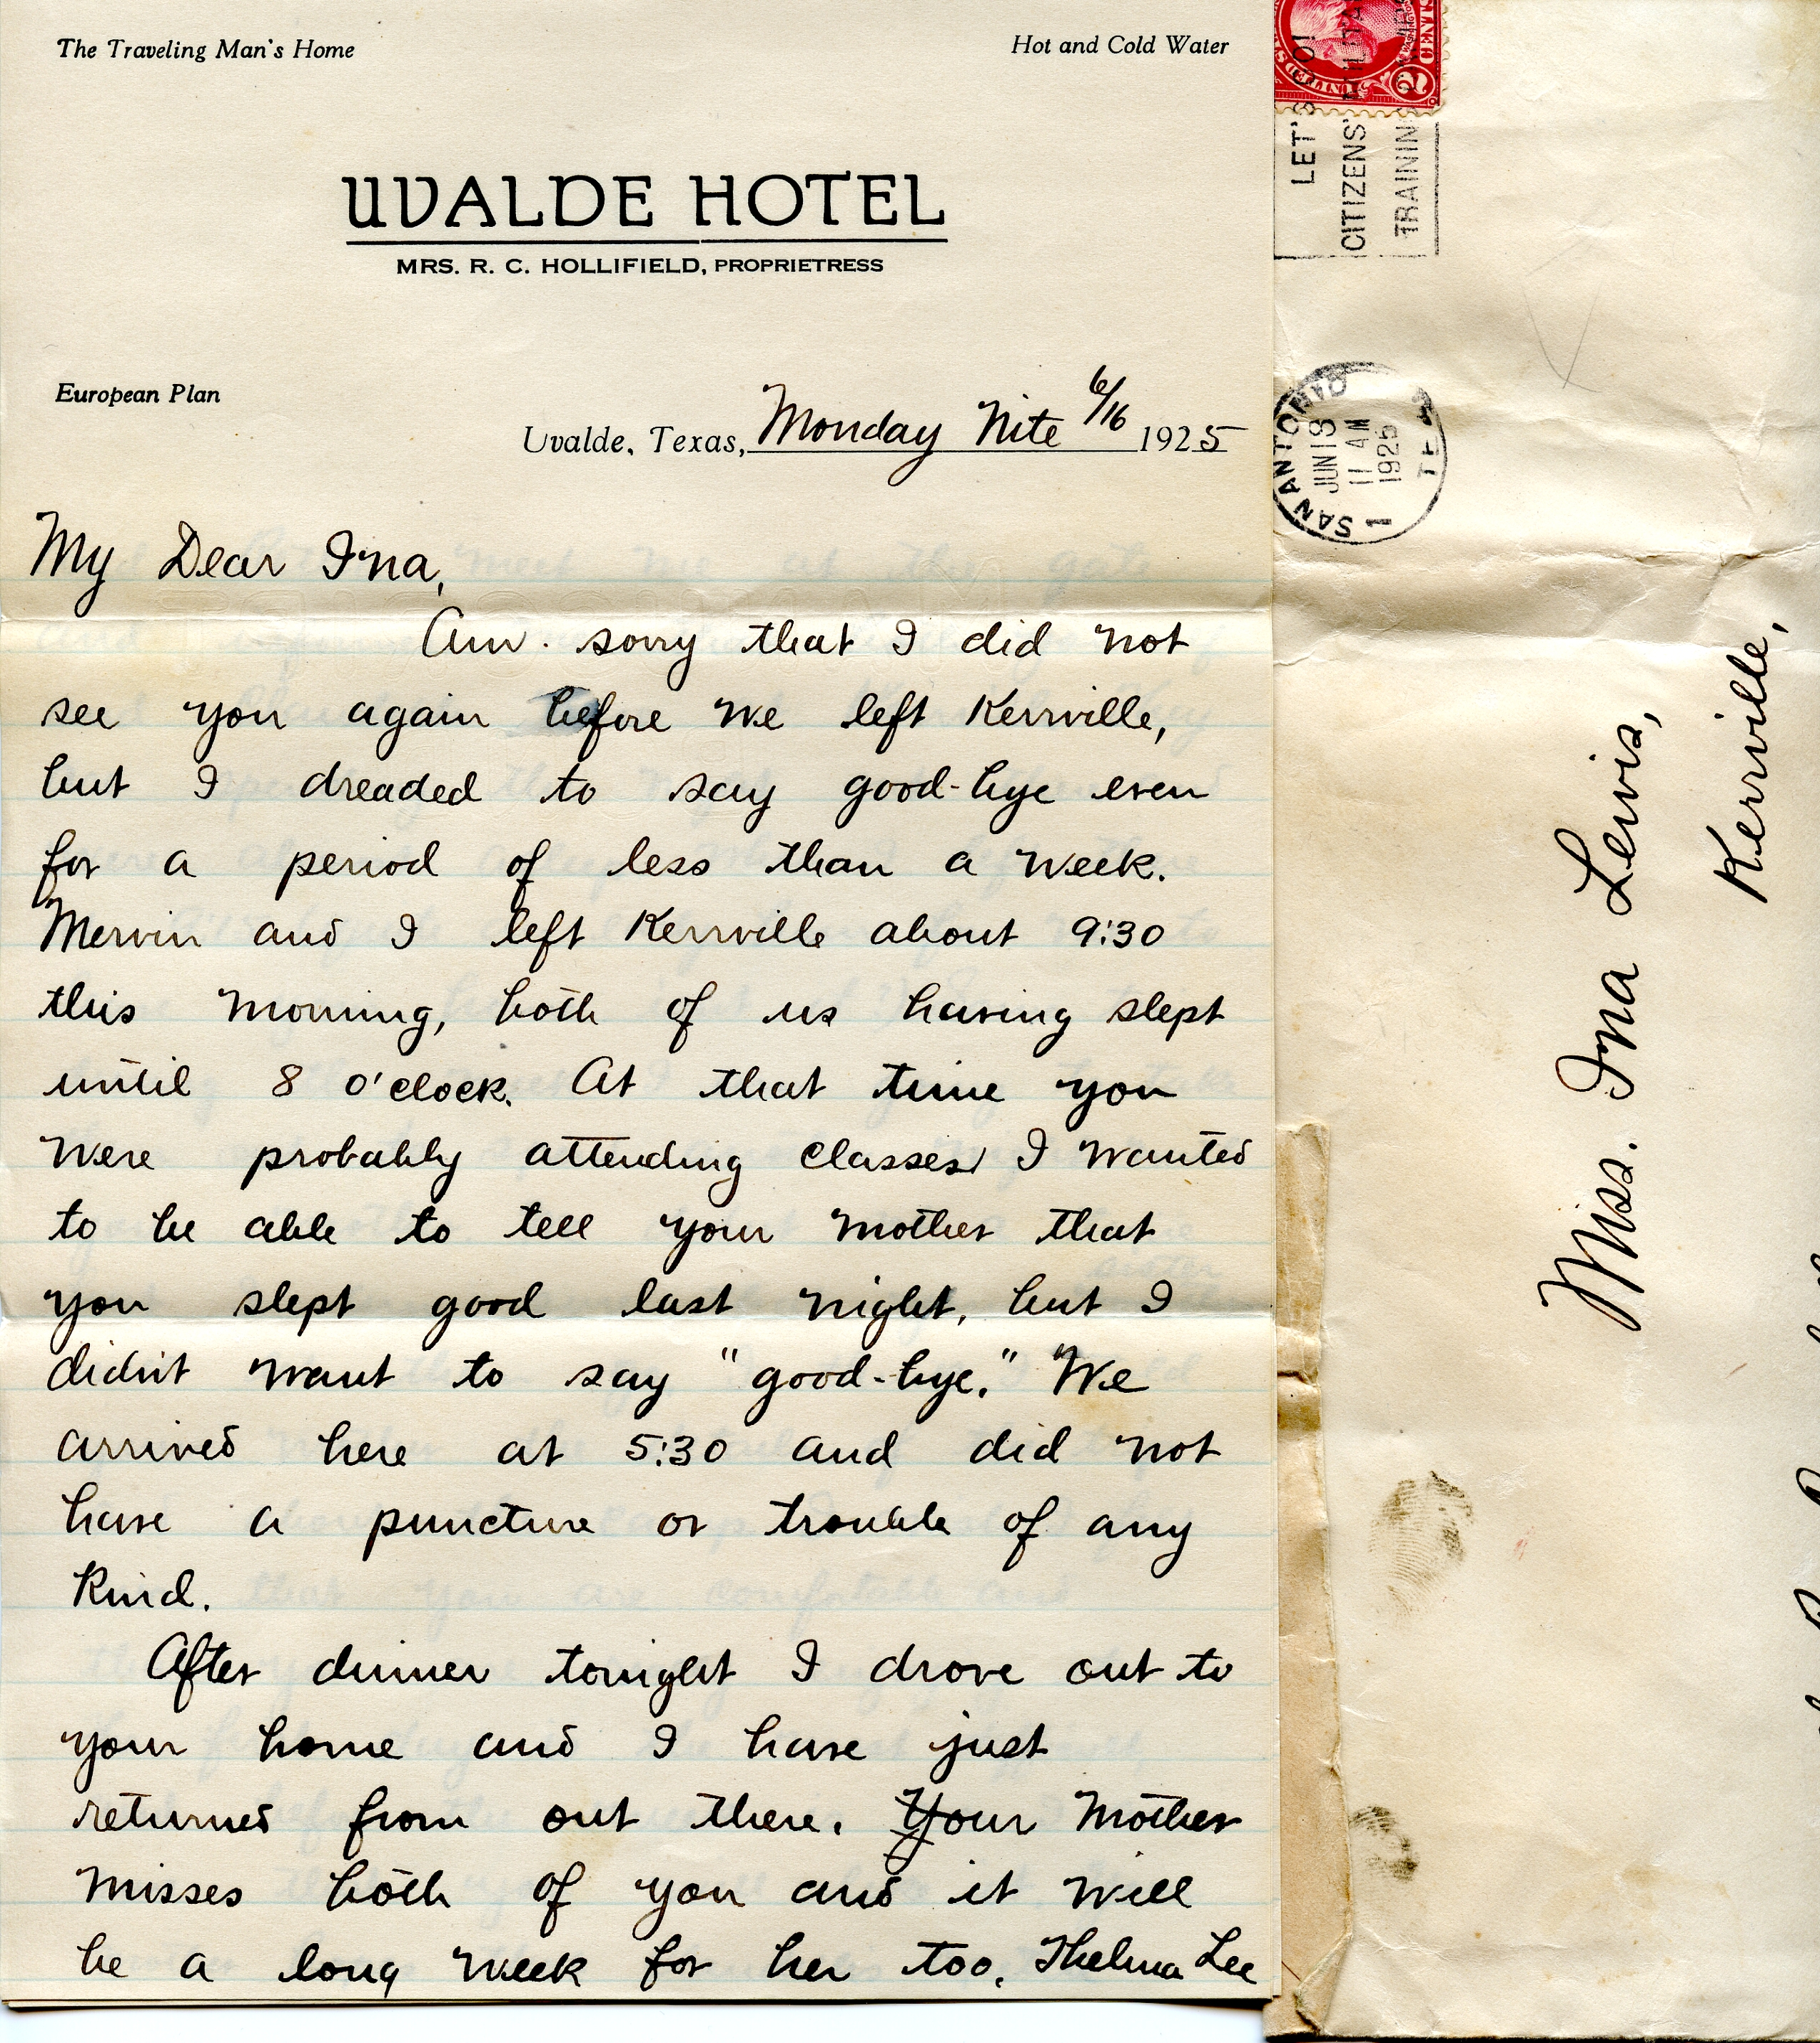 The Traveling Man's Home
Hot and Cold Water
UVALDE HOTEL
MRS. R. C. HOLLIFIELD, PROPRIETRESS
European Plan
Uvalde, Texas, Monday Nite 6/16 1925
My Dear Ina,
Am. sorry that I did not
see you again before we left Kerrville,
but I dreaded to say good-bye even
for a period of less than a week.
Mervin and I left Kerrville about 9:30
this morning, both of us having slept
until 8 o'clock. At that time you
were probably attending classes. I wanted
to be able to tell your mother that
you slept good last night, but I
didn't want to say "good-bye." We
arrived here at 5:30 and did not
have a puncture or trouble of any
kind.
After dinner tonight I drove out to
your home and I have just
returned from out there. Your Mother
misses both of you and it will
be a long week for her too. Thelma Lee
UNITED STATES
2
LET'S GO!
CITIZENS' MILITARY
TRAINING
SAN ANTONIO
JUN 18
11 AM
1925
TEX
1
Miss. Ina Lewis,
Kerrville,